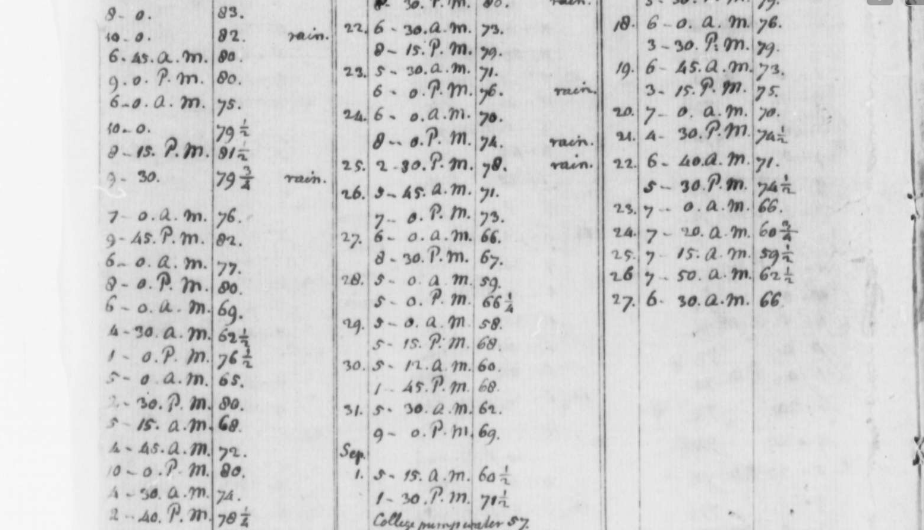 8-0. 83.
10-0. 82. rain.
6-45. a.m. 80.
9-0. P.M. 80.
6-0. a.m. 75.
10-0. 79 1/2
8-15. P.M. 81 1/2
9-30. 79 3/4 rain.
7-0. a.m. 76.
9-45. P.M. 82.
6-0. a.m. 77.
8-0. P.M. 80.
6-0. a.m. 69.
4-30. a.m. 62 1/2
1-0. P.M. 76 1/2
5-0. a.m. 65.
2-30. P.M. 80.
5-15. a.m. 68.
4-45. a.m. 72.
10-0. P.M. 80.
4-30. a.m. 74.
2-40. P.M. 78 1/4
8-30. P.M. 80. rain.
22. 6-30. a.m. 73.
8-15. P.M. 79.
23. 5-30. a.m. 71.
6-0. P.M. 76. rain.
24. 6-0. a.m. 70.
8-0. P.M. 74. rain.
25. 2-30. P.M. 78. rain.
26. 5-45. a.m. 71.
7-0. P.M. 73.
27. 6-0. a.m. 66.
8-30. P.M. 67.
28. 5-0. a.m 59.
5-0. P.M. 66 1/4
29. 5-0. a.m. 58.
5-15. P.M. 68.
30. 5-12. a.m. 60.
1-45. P.M. 68.
31. 5-30. a.m. 62.
9-0. P.M. 69.
Sep.
1. 5-15. a.m. 60 1/2
1-30. P.M. 71 1/2
College pump water 57.
18. 6-0. a.m. 76.
3-30. P.M. 79.
19. 6-45. a.m. 73.
3-15. P.M. 75.
20. 7-0. a.m. 70.
21. 4-30. P.M. 74 1/2
22. 6-40. a.m. 71.
5-30. P.M. 74 1/2
23. 7-0. a.m. 66.
24. 7-20. a.m. 60 3/4
25. 7-15. a.m. 59 1/2
26 7-50. a.m. 62 1/2
27. 6-30. a.m. 66.